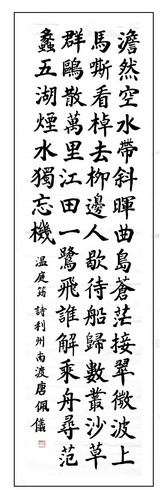 澹然空水帶斜暉曲島蒼茫接翠微波上
馬嘶看棹去柳邊人歇待船歸數叢沙草
群鷗散萬里江田一鷺飛誰解乘舟尋范
蠡五湖煙水獨忘機 溫庭筠詩利州南渡唐佩儀